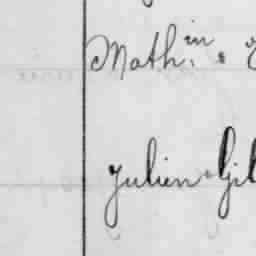 Math. in
Julien Gil